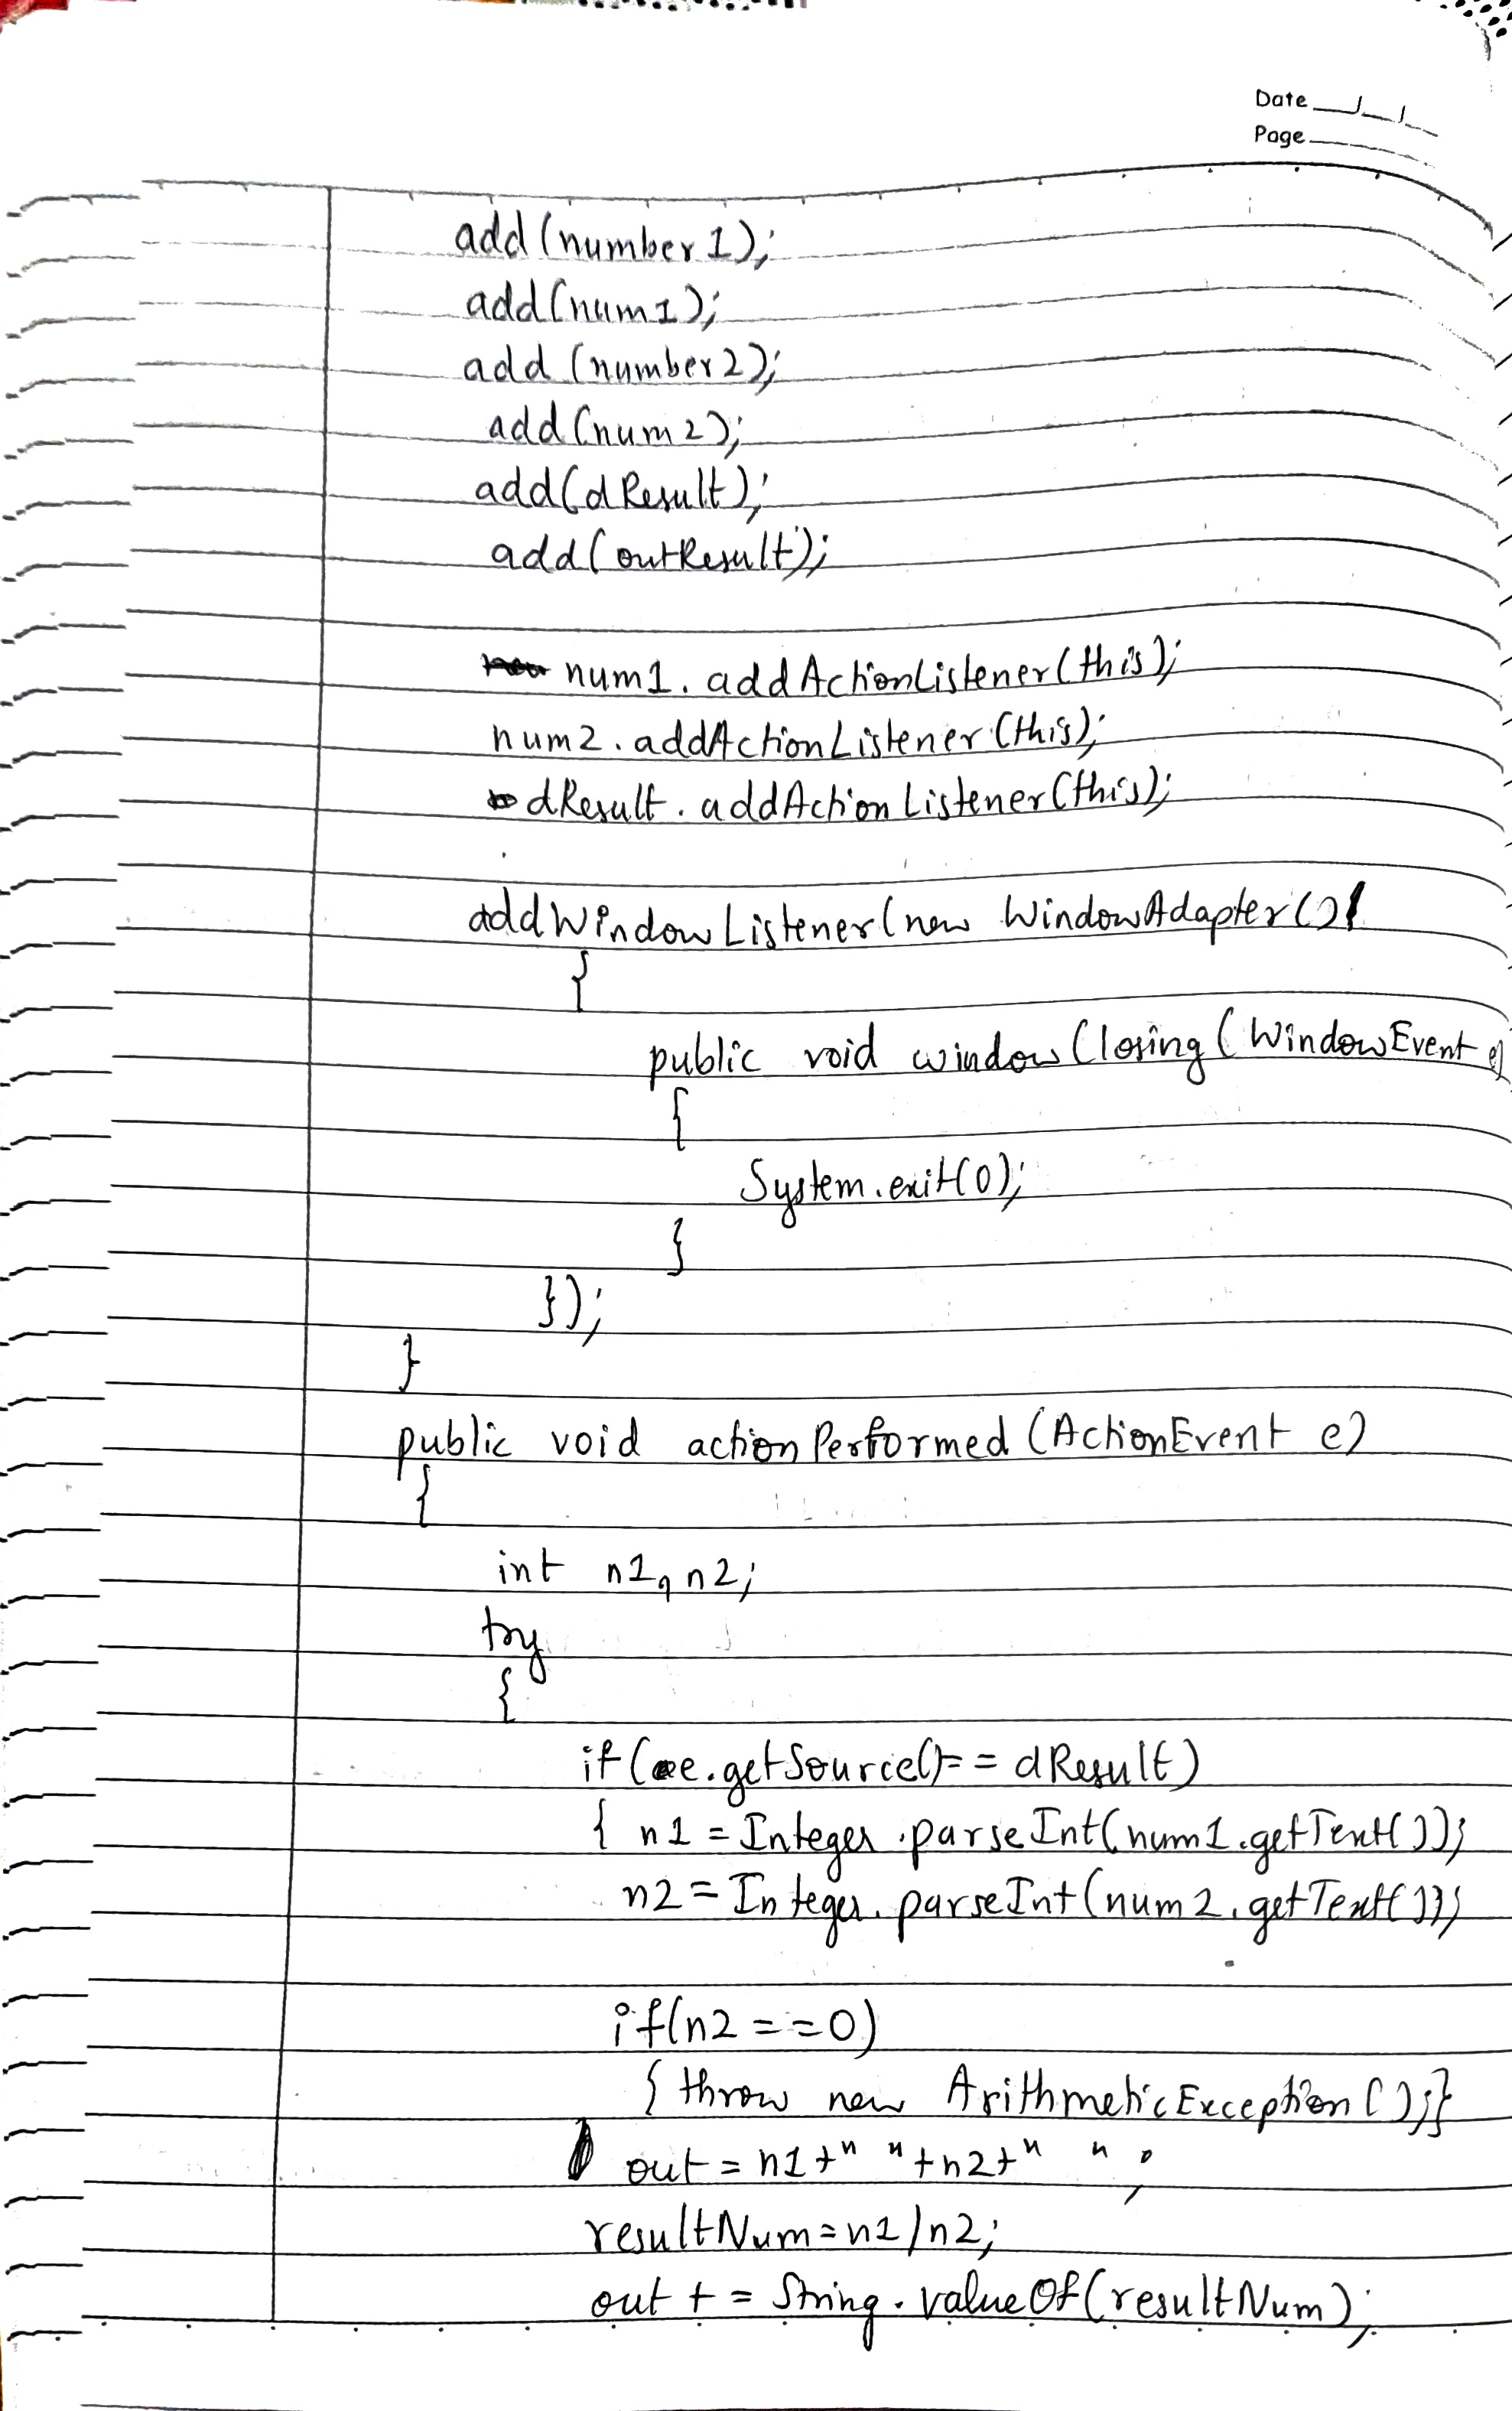 Date
Page
add(number1);
add(num1);
add(number2);
add(num2);
add(dResult);
add(outResult);
num1.addActionListener(this);
num2.addActionListener(this);
dResult.addActionListener(this);
addWindowListener(new WindowAdapter()
{
public void windowClosing(WindowEvent e)
{
System.exit(0);
}
});
}
public void actionPerformed(ActionEvent e)
{
int n1,n2;
try
{
if(e.getSource()==dResult)
{ n1=Integer.parseInt(num1.getText());
n2=Integer.parseInt(num2.getText());
if(n2==0)
{ throw new ArithmeticException();}
out=n1+" "+n2+" ";
resultNum=n1/n2;
out+=String.valueOf(resultNum);